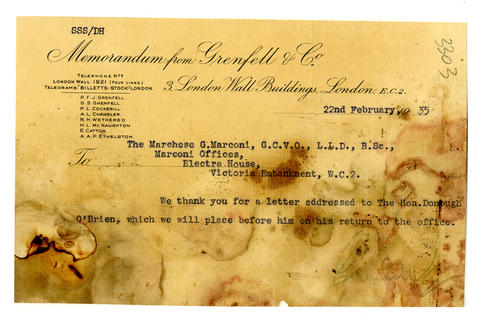 SSS/DH
2303
Memorandum from Grenfell & Co.
TELEPHONE Nos
LONDON WALL 1821 (FOUR LINES)
TELEGRAMS "BILLETTS-STOCK" LONDON.
3, London Wall Buildings, London, E.C.2.
R. F. J. GRENFELL
G. S. GRENFELL
P. L. COCKERILL
A. L. CHANDLER
R. H. WETHERED
H. L. McNAUGHTON
E. CATTON
A. A. P. ETHELSTON.
22nd February, 1935
To
The Marchese G.Marconi, G.C.V.O., L.L.D., B.Sc.,
Marconi Offices,
Electra House,
Victoria Embankment, W.C.2.
We thank you for a letter addressed to The Hon.Donough
O'Brien, which we will place before him on his return to the office.